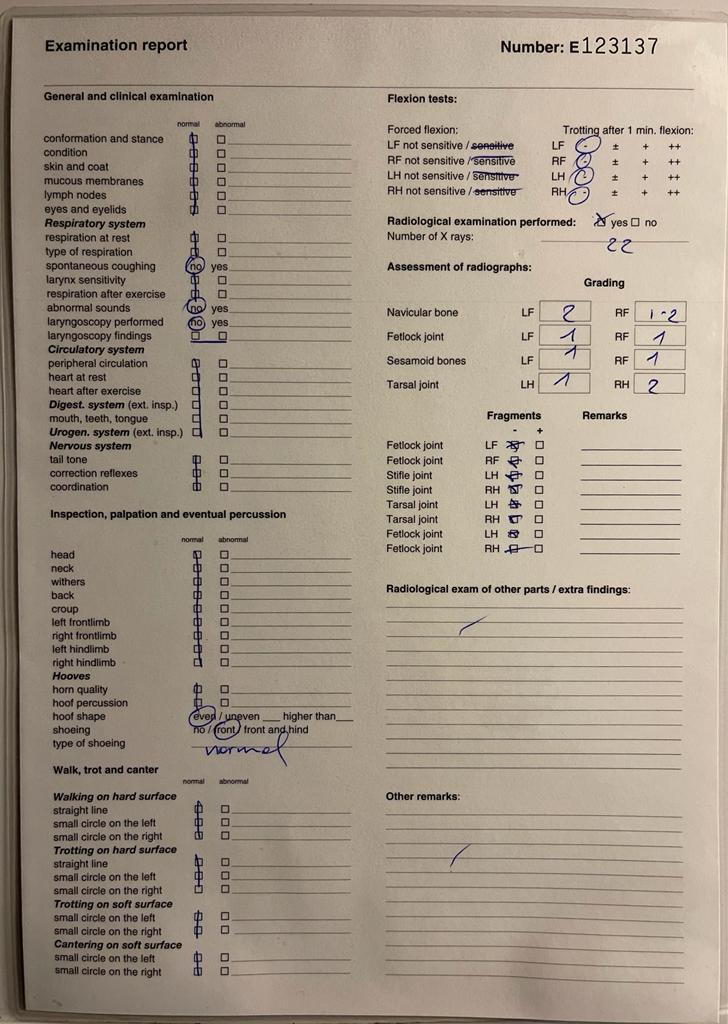 Examination report
Number: E123137
General and clinical examination
normal abnormal
conformation and stance
condition
skin and coat
mucous membranes
lymph nodes
eyes and eyelids
Respiratory system
respiration at rest
type of respiration
spontaneous coughing no yes
larynx sensitivity
respiration after exercise
abnormal sounds no yes
laryngoscopy performed no yes
laryngoscopy findings
Circulatory system
peripheral circulation
heart at rest
heart after exercise
Digest. system (ext. insp.)
mouth, teeth, tongue
Urogen. system (ext. insp.)
Nervous system
tail tone
correction reflexes
coordination
Inspection, palpation and eventual percussion
normal abnormal
head
neck
withers
back
croup
left frontlimb
right frontlimb
left hindlimb
right hindlimb
Hooves
horn quality
hoof percussion
hoof shape even / uneven ___ higher than___
shoeing no / front / front and hind
type of shoeing normal
Walk, trot and canter
normal abnormal
Walking on hard surface
straight line
small circle on the left
small circle on the right
Trotting on hard surface
straight line
small circle on the left
small circle on the right
Trotting on soft surface
small circle on the left
small circle on the right
Cantering on soft surface
small circle on the left
small circle on the right
Flexion tests:
Forced flexion: Trotting after 1 min. flexion:
LF not sensitive / sensitive LF - ± + ++
RF not sensitive / sensitive RF - ± + ++
LH not sensitive / sensitive LH - ± + ++
RH not sensitive / sensitive RH - ± + ++
Radiological examination performed: yes no
Number of X rays: 22
Assessment of radiographs:
Grading
Navicular bone LF 2 RF 1-2
Fetlock joint LF 1 RF 1
Sesamoid bones LF 1 RF 1
Tarsal joint LH 1 RH 2
Fragments Remarks
- +
Fetlock joint LF
Fetlock joint RF
Stifle joint LH
Stifle joint RH
Tarsal joint LH
Tarsal joint RH
Fetlock joint LH
Fetlock joint RH
Radiological exam of other parts / extra findings:
Other remarks: